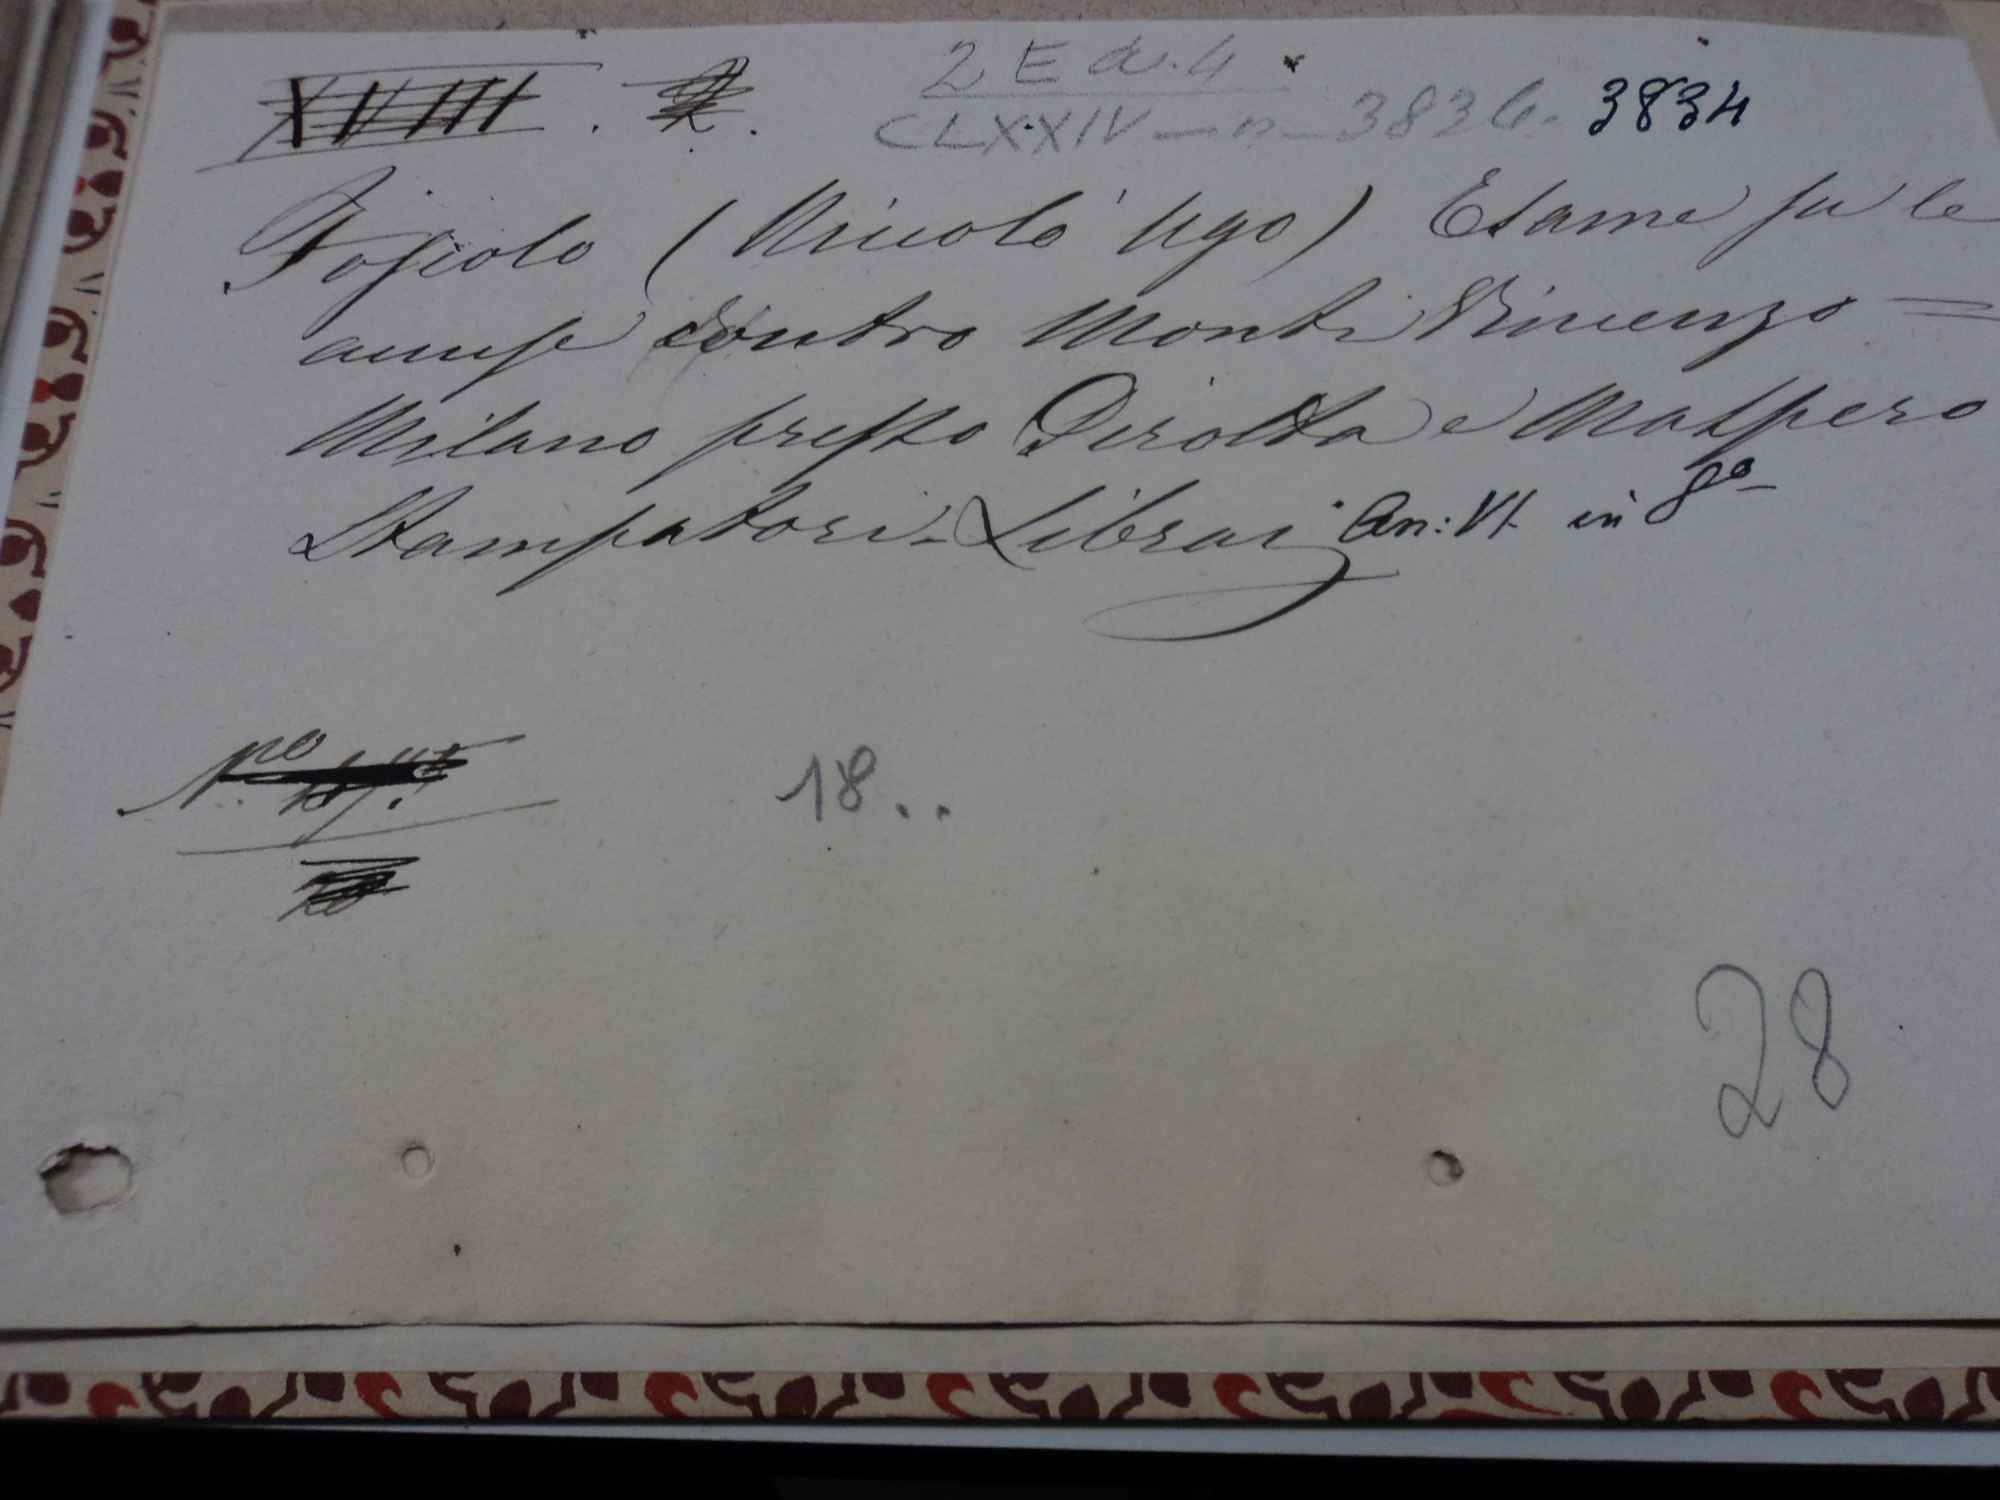 XVIII. 2.
2 E a. 4
CLXXIV — n — 3834. 3834
Foscolo (Nicolò Ugo) Esame su le
accuse contro Monti Vincenzo =
Milano presso Pirotta e Maspero
Stampatori-Librai An: VI. in 8º
Nº
18..
28